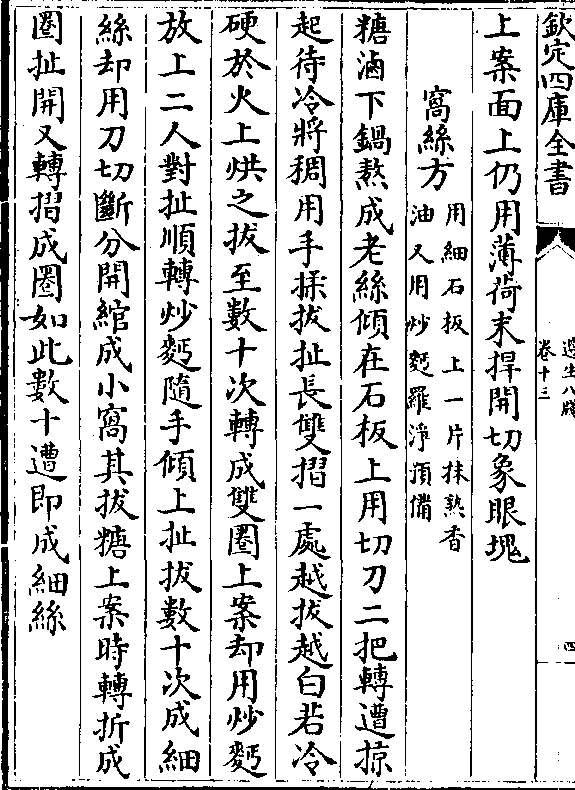 欽定四庫全書
遵生八牋
卷十三
四
上案面上仍用薄荷末捍開切象眼塊
窩絲方
用細石板上一片抹熟香
油又用炒麫羅淨預備
糖滷下鍋熬成老絲傾在石板上用切刀二把轉遭掠
起待冷將稠用手揉拔扯長雙摺一處越拔越白若冷
硬於火上烘之拔至數十次轉成雙圈上案却用炒麫
放上二人對扯順轉炒麫隨手傾上扯拔數十次成細
絲却用刀切斷分開綰成小窩其拔糖上案時轉折成
圈扯開又轉摺成圈如此數十遭即成細絲